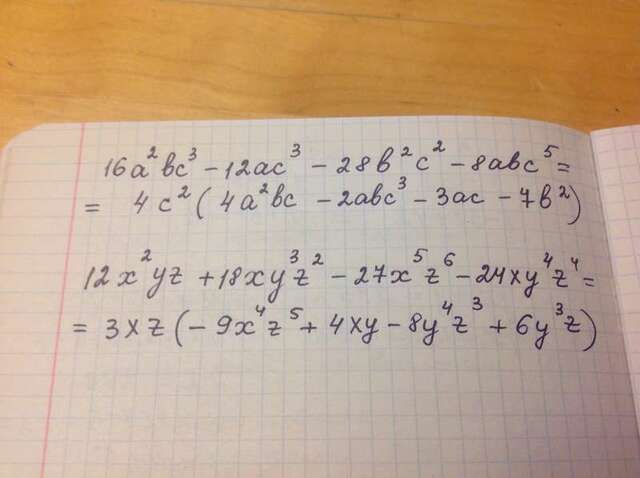 16a²bc³ - 12ac³ - 28b²c² - 8abc⁵ =
= 4c²(4a²bc - 2abc³ - 3ac - 7b²)
12x²yz + 18xy³z² - 27x⁵z⁶ - 24xy⁴z⁴ =
= 3xz(-9x⁴z⁵ + 4xy - 8y⁴z³ + 6y³z)